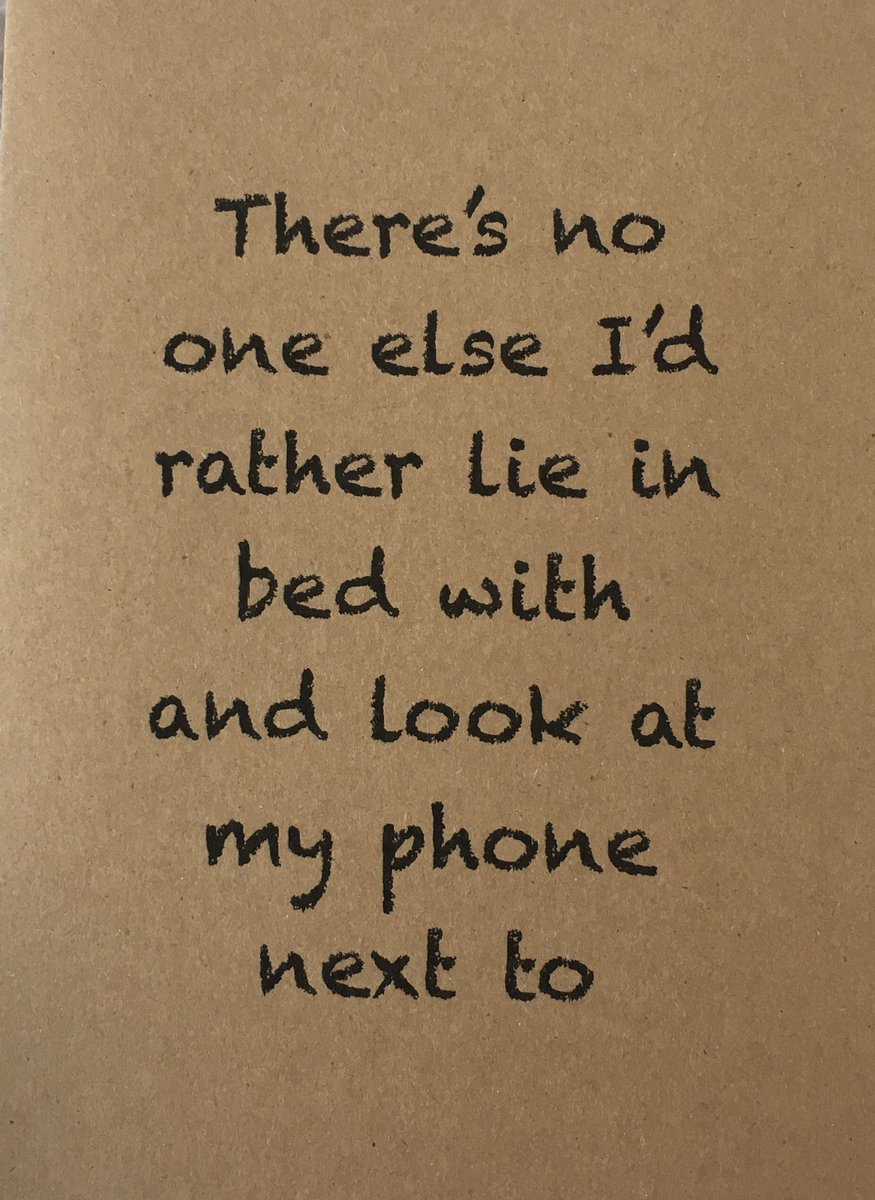 There's no
one else I'd
rather lie in
bed with
and look at
my phone
next to